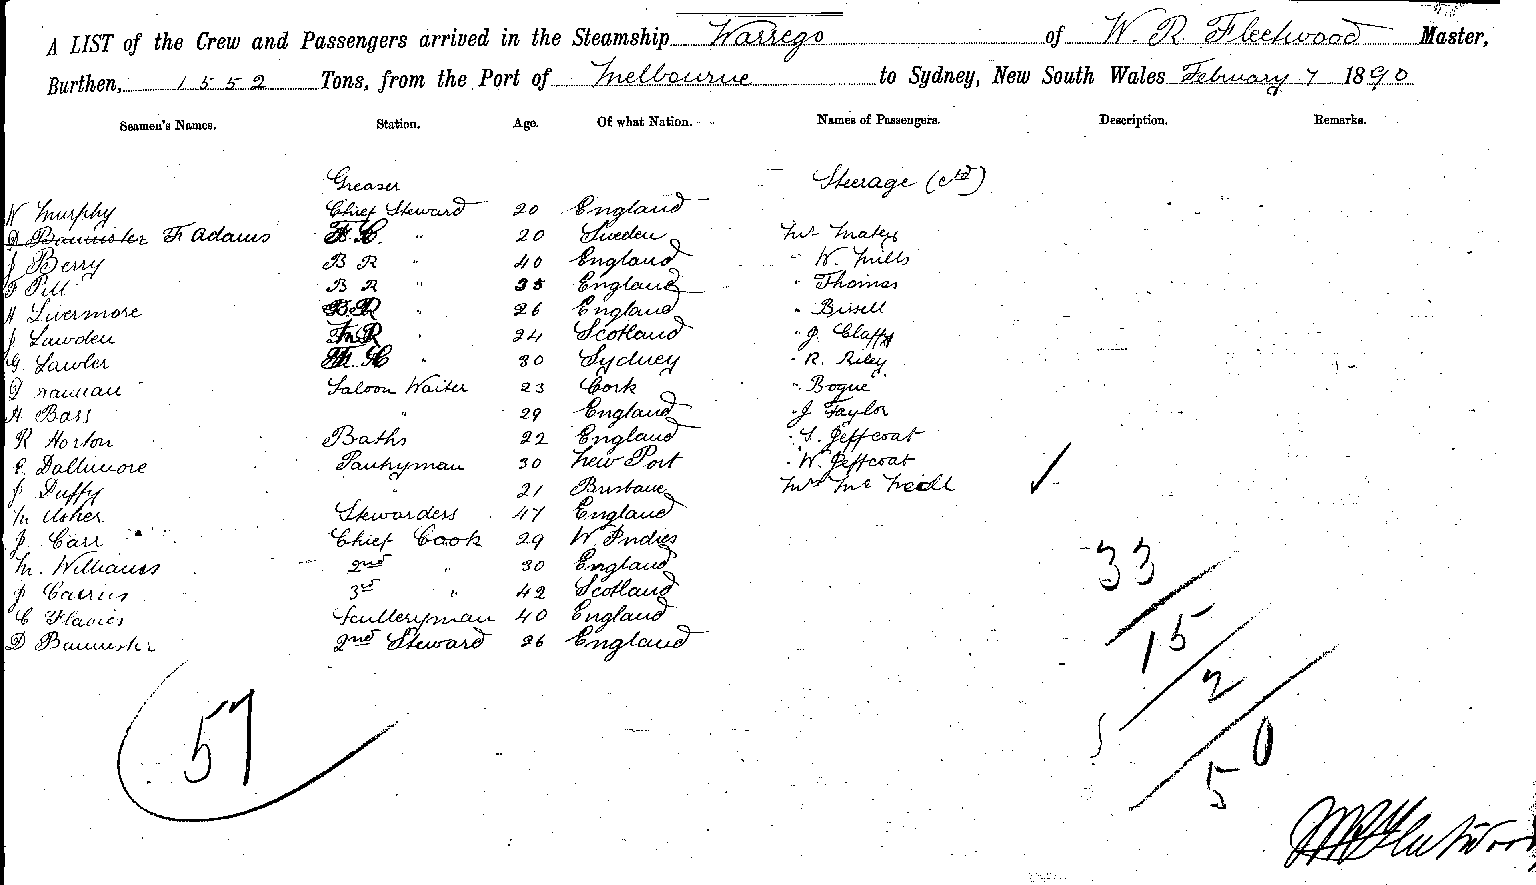 A LIST of the Crew and Passengers arrived in the Steamship Warrego of W. R Fleetwood Master,
Burthen, 1552 Tons, from the Port of Melbourne to Sydney, New South Wales February 7 1890
Seamen's Names. Station. Age. Of what Nation. Names of Passengers. Description. Remarks.
Greaser Steerage (ctd)
W Murphy Chief Steward 20 England
D Bannister F Adams F. C. " 20 Sweden Mr Mates
J Berry B R " 40 England " W. Mills
F Pill B R " 35 England " Thomas
H Livermore B R " 26 England " Bissell
J Lawden F R " 24 Scotland " J. Claffy
G. Lawler C " 30 Sydney " R. Riley
D Saloon Waiter 23 Cork " Bogue
H Bass " 29 England " J Taylor
R Horton Baths 22 England " S. Jeffcoat
E. Dallimore Pantryman 30 New Port " W. Jeffcoat
J Duffy " 21 Brisbane Mrs Mc Neill
M Usher Stewardess 47 England
J. Carr Chief Cook 29 W. Indies
M. Williams 2nd " 30 England
J Cairns 3rd " 42 Scotland
C Flavies Sculleryman 40 England
D Bannister 2nd Steward 26 England
33
15
2
57
50
W R Fleetwood